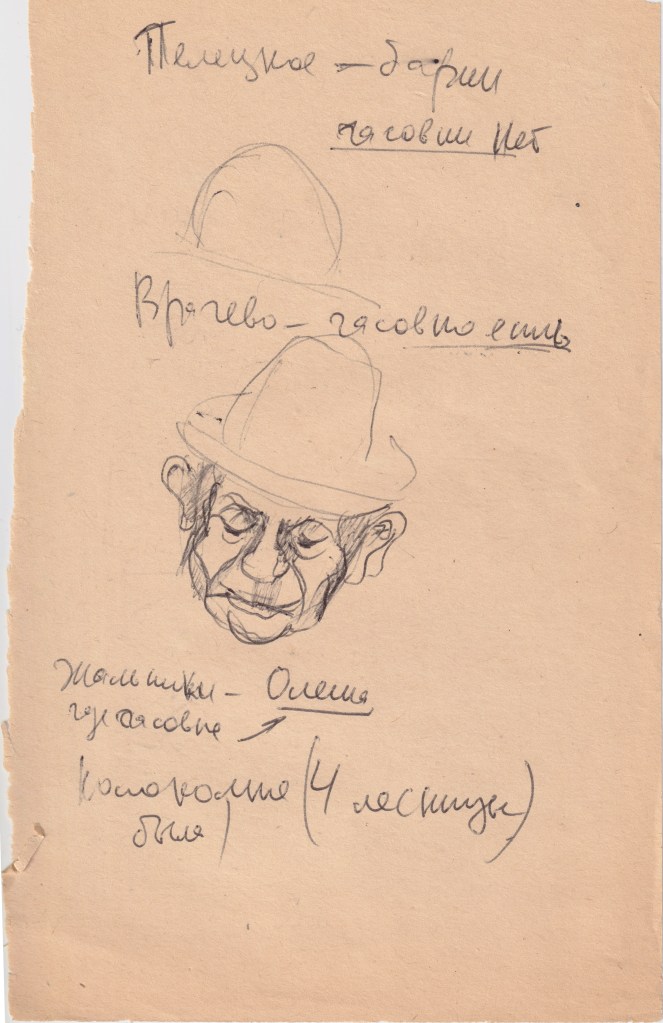 Пелецкое – барин
часовни нет
Врачево – часовня есть
Жальники – Олеша
где часовня
Колокольня (4 лесницы)
была